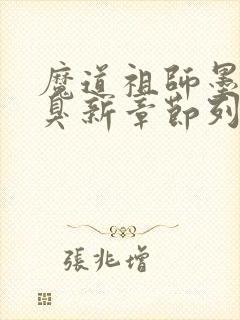 魔道祖師墨
臭新章節列
張兆增